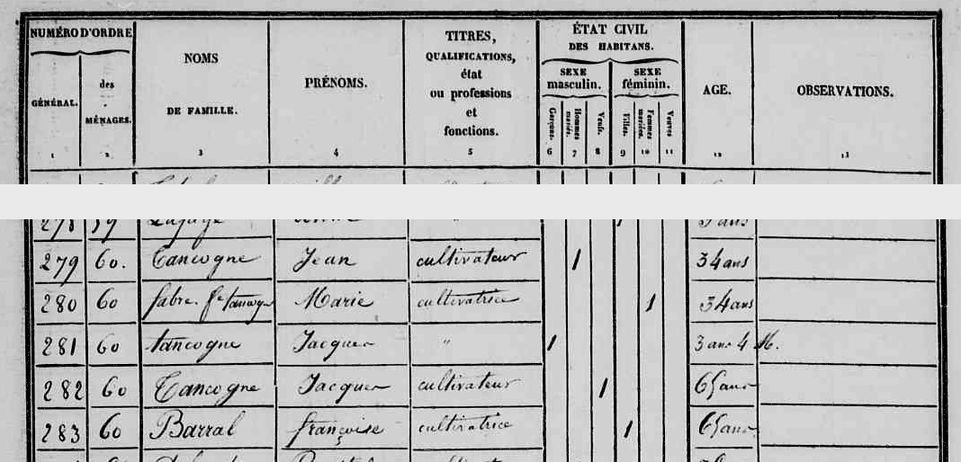 NUMÉRO D'ORDRE NOMS DE FAMILLE. PRÉNOMS. TITRES, QUALIFICATIONS, état ou professions et fonctions. ÉTAT CIVIL DES HABITANS. AGE. OBSERVATIONS.
GÉNÉRAL. des MÉNAGES. SEXE masculin. SEXE féminin.
Garçons. Hommes mariés. Veufs. Filles. Femmes mariées. Veuves
1 2 3 4 5 6 7 8 9 10 11 12 13
278 59
279 60. Tancogne Jean cultivateur 1 34 ans
280 60 fabre fe tancogne Marie cultivatrice 1 34 ans
281 60 tancogne Jacques " 1 3 ans 4 M.
282 60 Tancogne Jacques cultivateur 1 65 ans
283 60 Barral françoise cultivatrice 1 65 ans